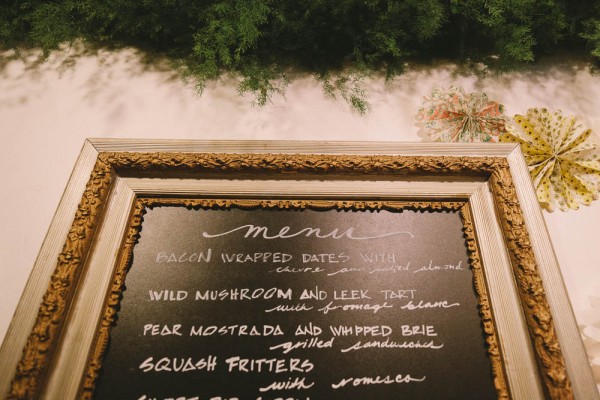 menu
BACON WRAPPED DATES WITH
chevre and almond
WILD MUSHROOM AND LEEK TART
with fromage blanc
PEAR MOSTRADA AND WHIPPED BRIE
grilled sandwiches
SQUASH FRITTERS
with romesco